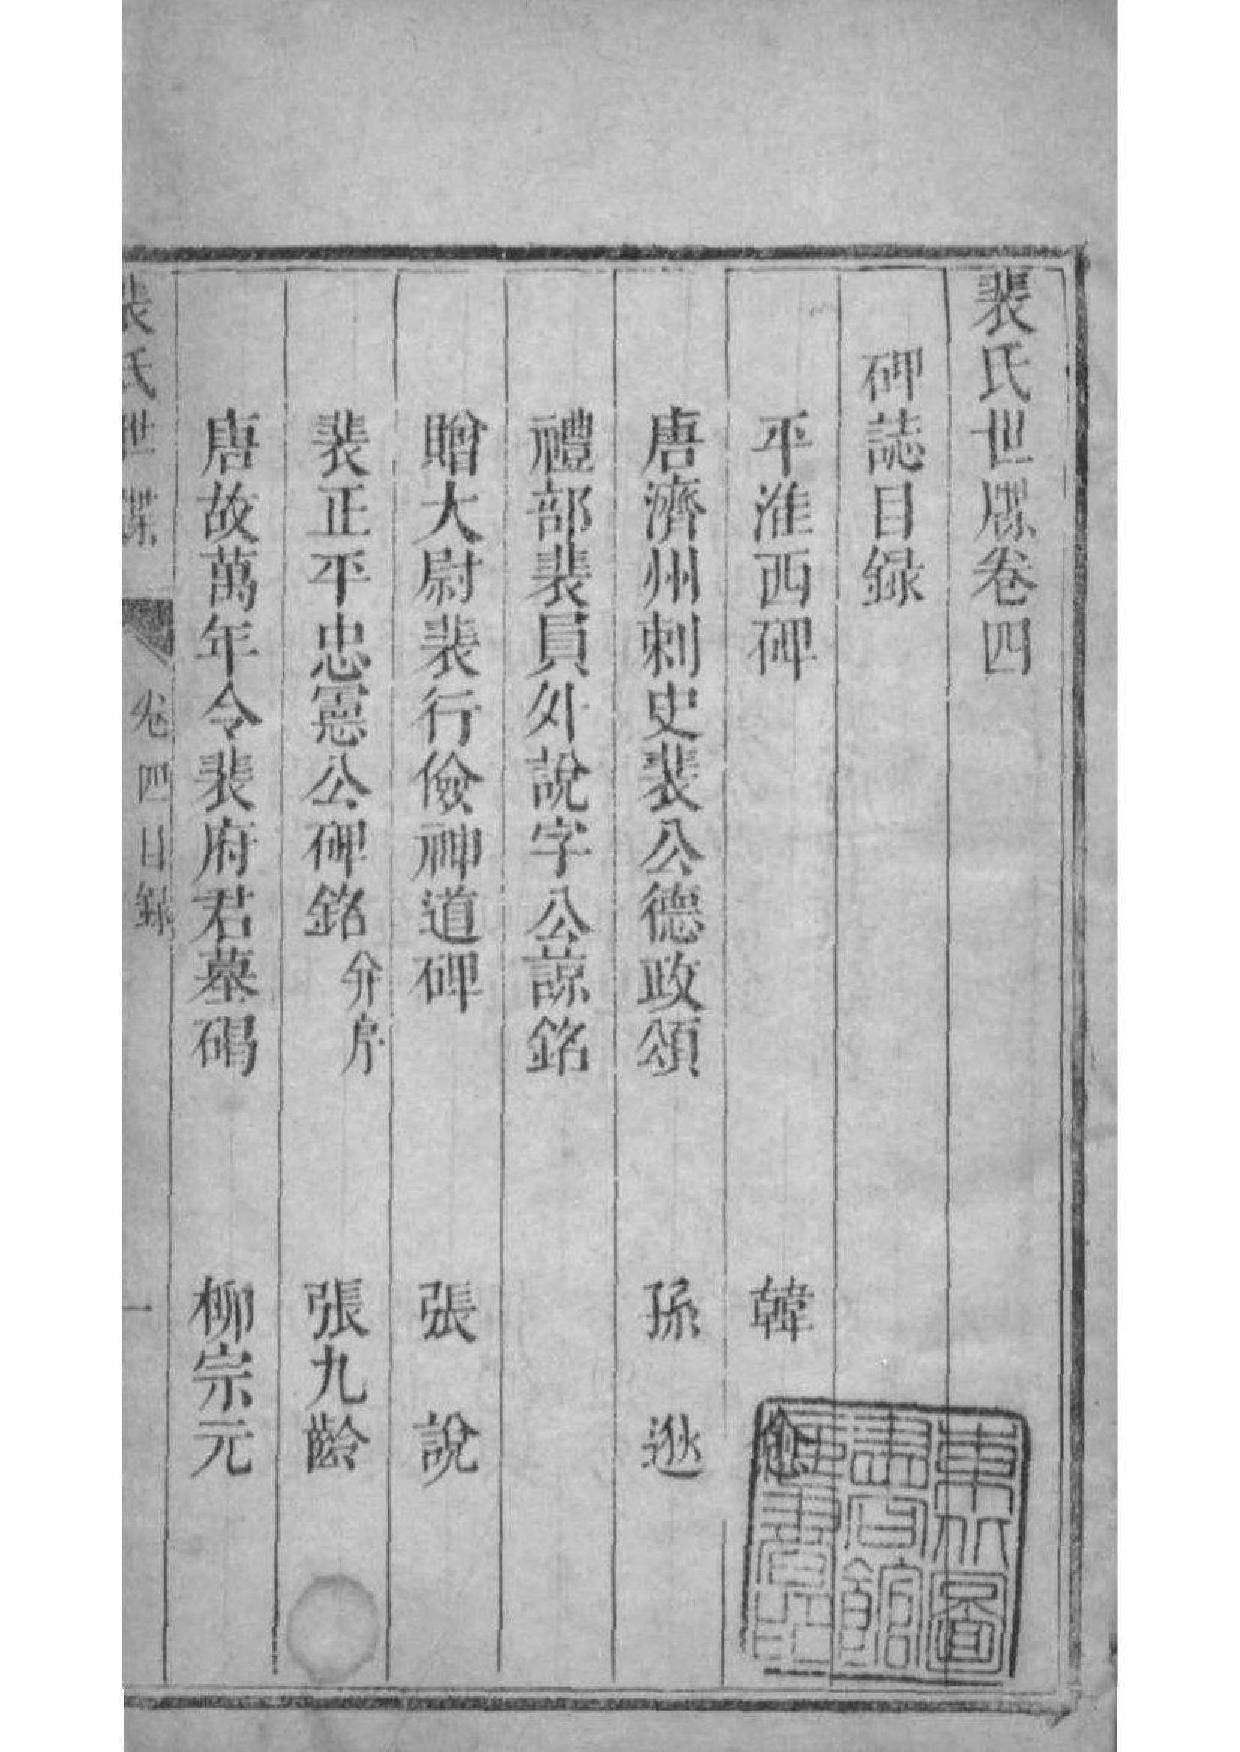 裴氏世牒卷四
碑誌目録
平淮西碑 韓愈
唐濟州刺史裴公德政頌 孫逖
禮部裴員外說字公諒銘
贈大尉裴行儉神道碑 張說
裴正平忠憲公碑銘 并序 張九齡
唐故萬年令裴府君墓碣 柳宗元
裴氏世牒 卷四目錄 一